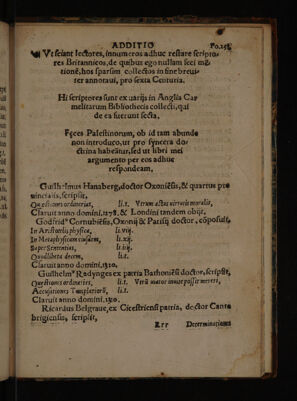 ADDITIO Fo.
Vt sciant lectores, innumeros adhuc restare scripto-
res Britannicos, de quibus ego nullam feci mē-
tionē, hos sparsim collectos in fine brevi-
ter annotaui, pro sexta Centuria.
Hi scriptores sunt ex varijs in Anglia Car
melitarum Bibliothecis collecti, qui
de ea fuerunt secta.
Feces Palestinorum, ob id tam abunde
non introduco, ut pro syncera do
ctrina habeātur, sed ut libri mei
argumento per eos adhuc
respondeam,
Guilhelmus Hanaberg, doctor Oxoniēsis, & quartus pro
uincialis, scripsit,
Questiones ordinarias, li.i. Vtrum actus virtutis moralis,
Claruit anno domini, & Londini tandem obijt,
Godfridus Cornubiēsis, Oxonij & Parisij doctor, cōposuit,
In Aristotelis physica, li.viij.
In Metaphysicam eiusdem, li.xij.
Super Sententias, li.iij.
Quodlibeta decem, li.x.
Claruit anno domini.1310.
Guilhelmus Radynges ex patria Bathoniēsi doctor, scripsit,
Questiones ordinarias, li.i. Vtrū maior innotescere,
Accusationes Templariorū, li.i.
Claruit anno domini.1310.
Ricardus Belgraue, ex Cicestriensi patria, doctor Canta
brigiensis, scripsit,
Rrr Determinationes